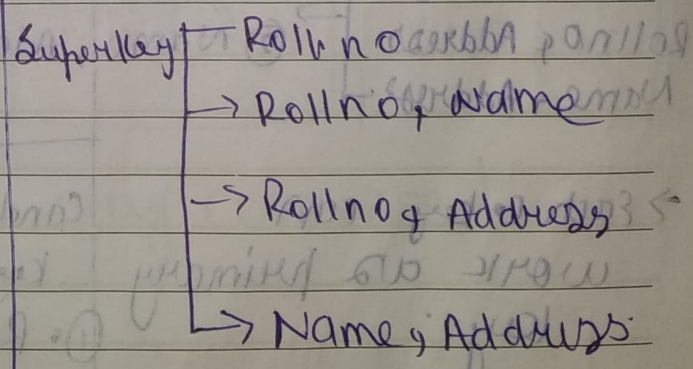 Superkey Roll no
→ Rollno, Name
→ Rollno, Address
→ Name, Address